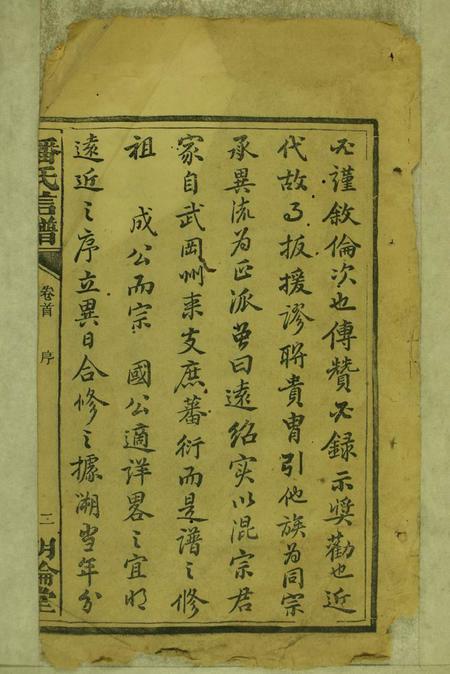 必謹敘倫次也傳贊必錄示奨勸也近
代故事扳援謬聯貴胄引他族為同宗
承異流為正派雖曰遠紹实以混宗君
家自武岡州來支庶蕃衍而是譜之修
祖 成公而宗 國公適詳畧之宜明
遠近之序立異日合修之據溯当年分
潘氏信譜
卷首 序
三 明倫堂